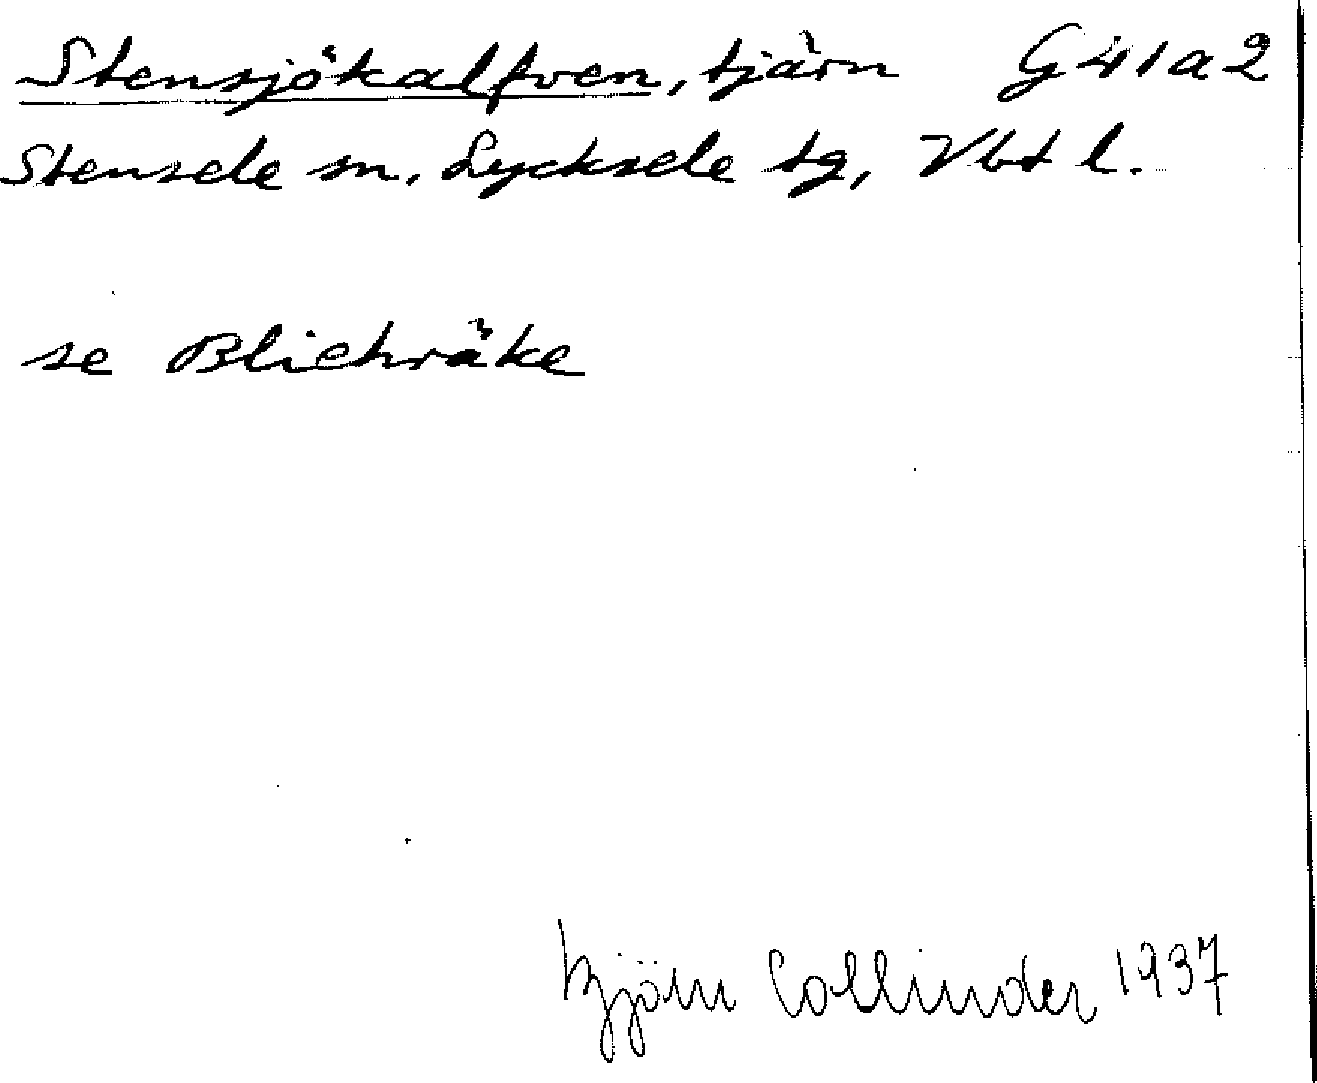 Stensjökalfven, tjärn G41a2
Stensele sn. Lycksele tg, Vbt l.
se Bliehräke
Björn Collinder 1937